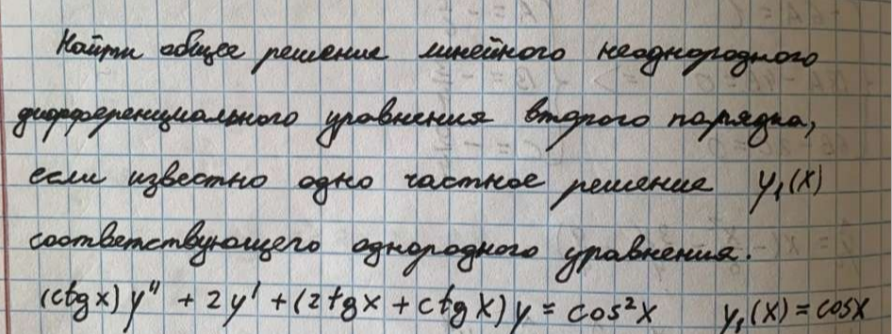 Найти общее решение линейного неоднородного
дифференциального уравнения второго порядка,
если известно одно частное решение y₁(x)
соответствующего однородного уравнения.
(ctg x) y'' + 2y' + (2tg x + ctg x) y = cos²x y₁(x) = cosx